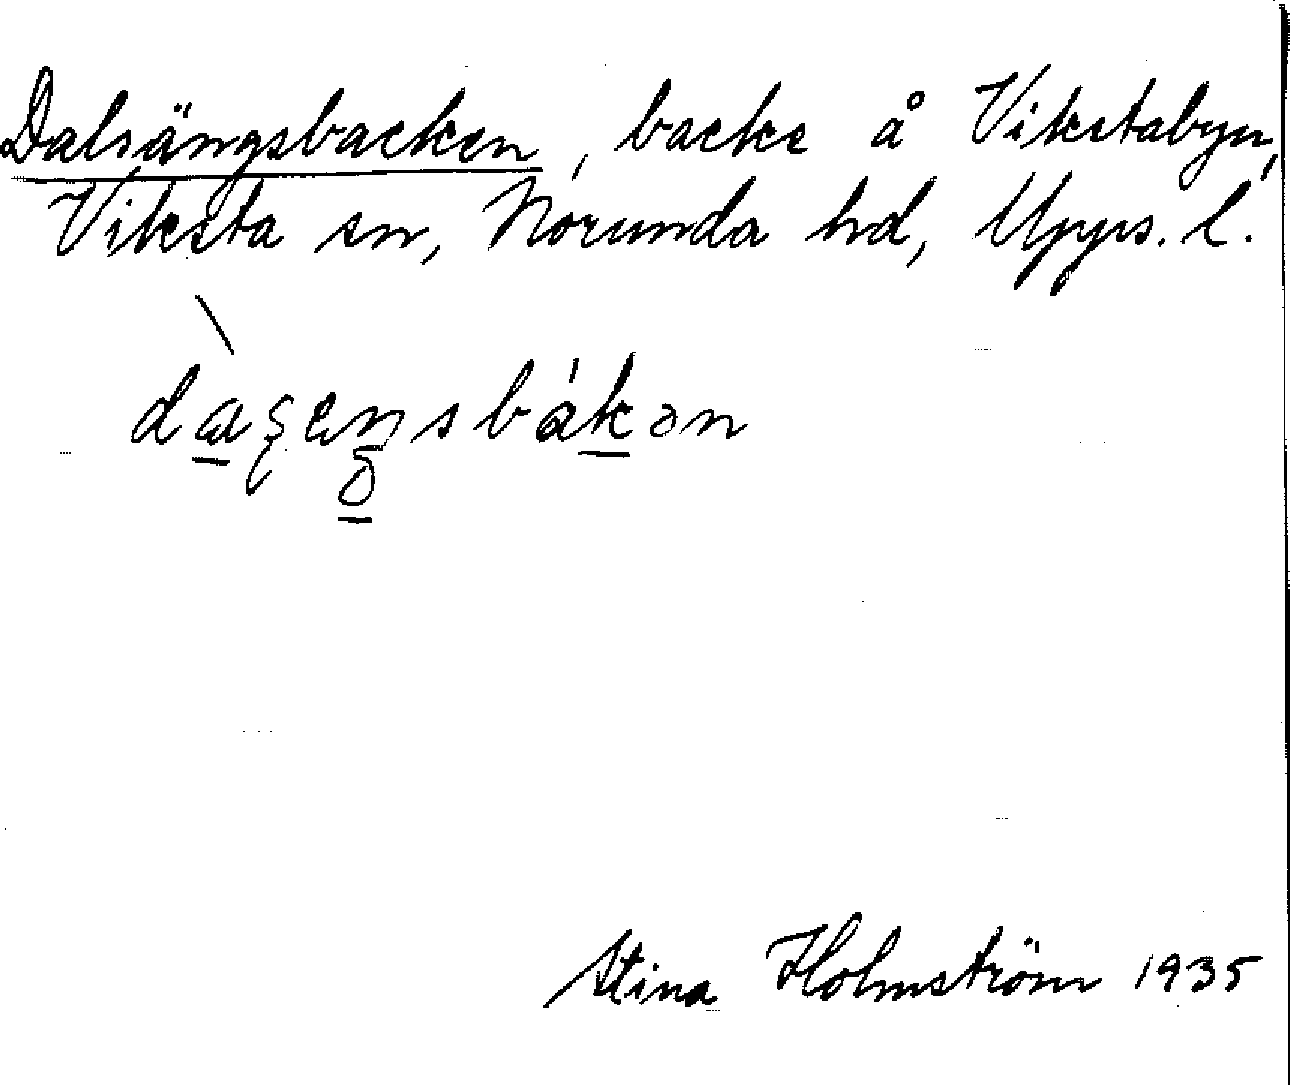 Dalsängsbacken, backe å Vikstabyn,
Viksta sn, Norunda hd, Upps. l.
Stina Holmström 1935